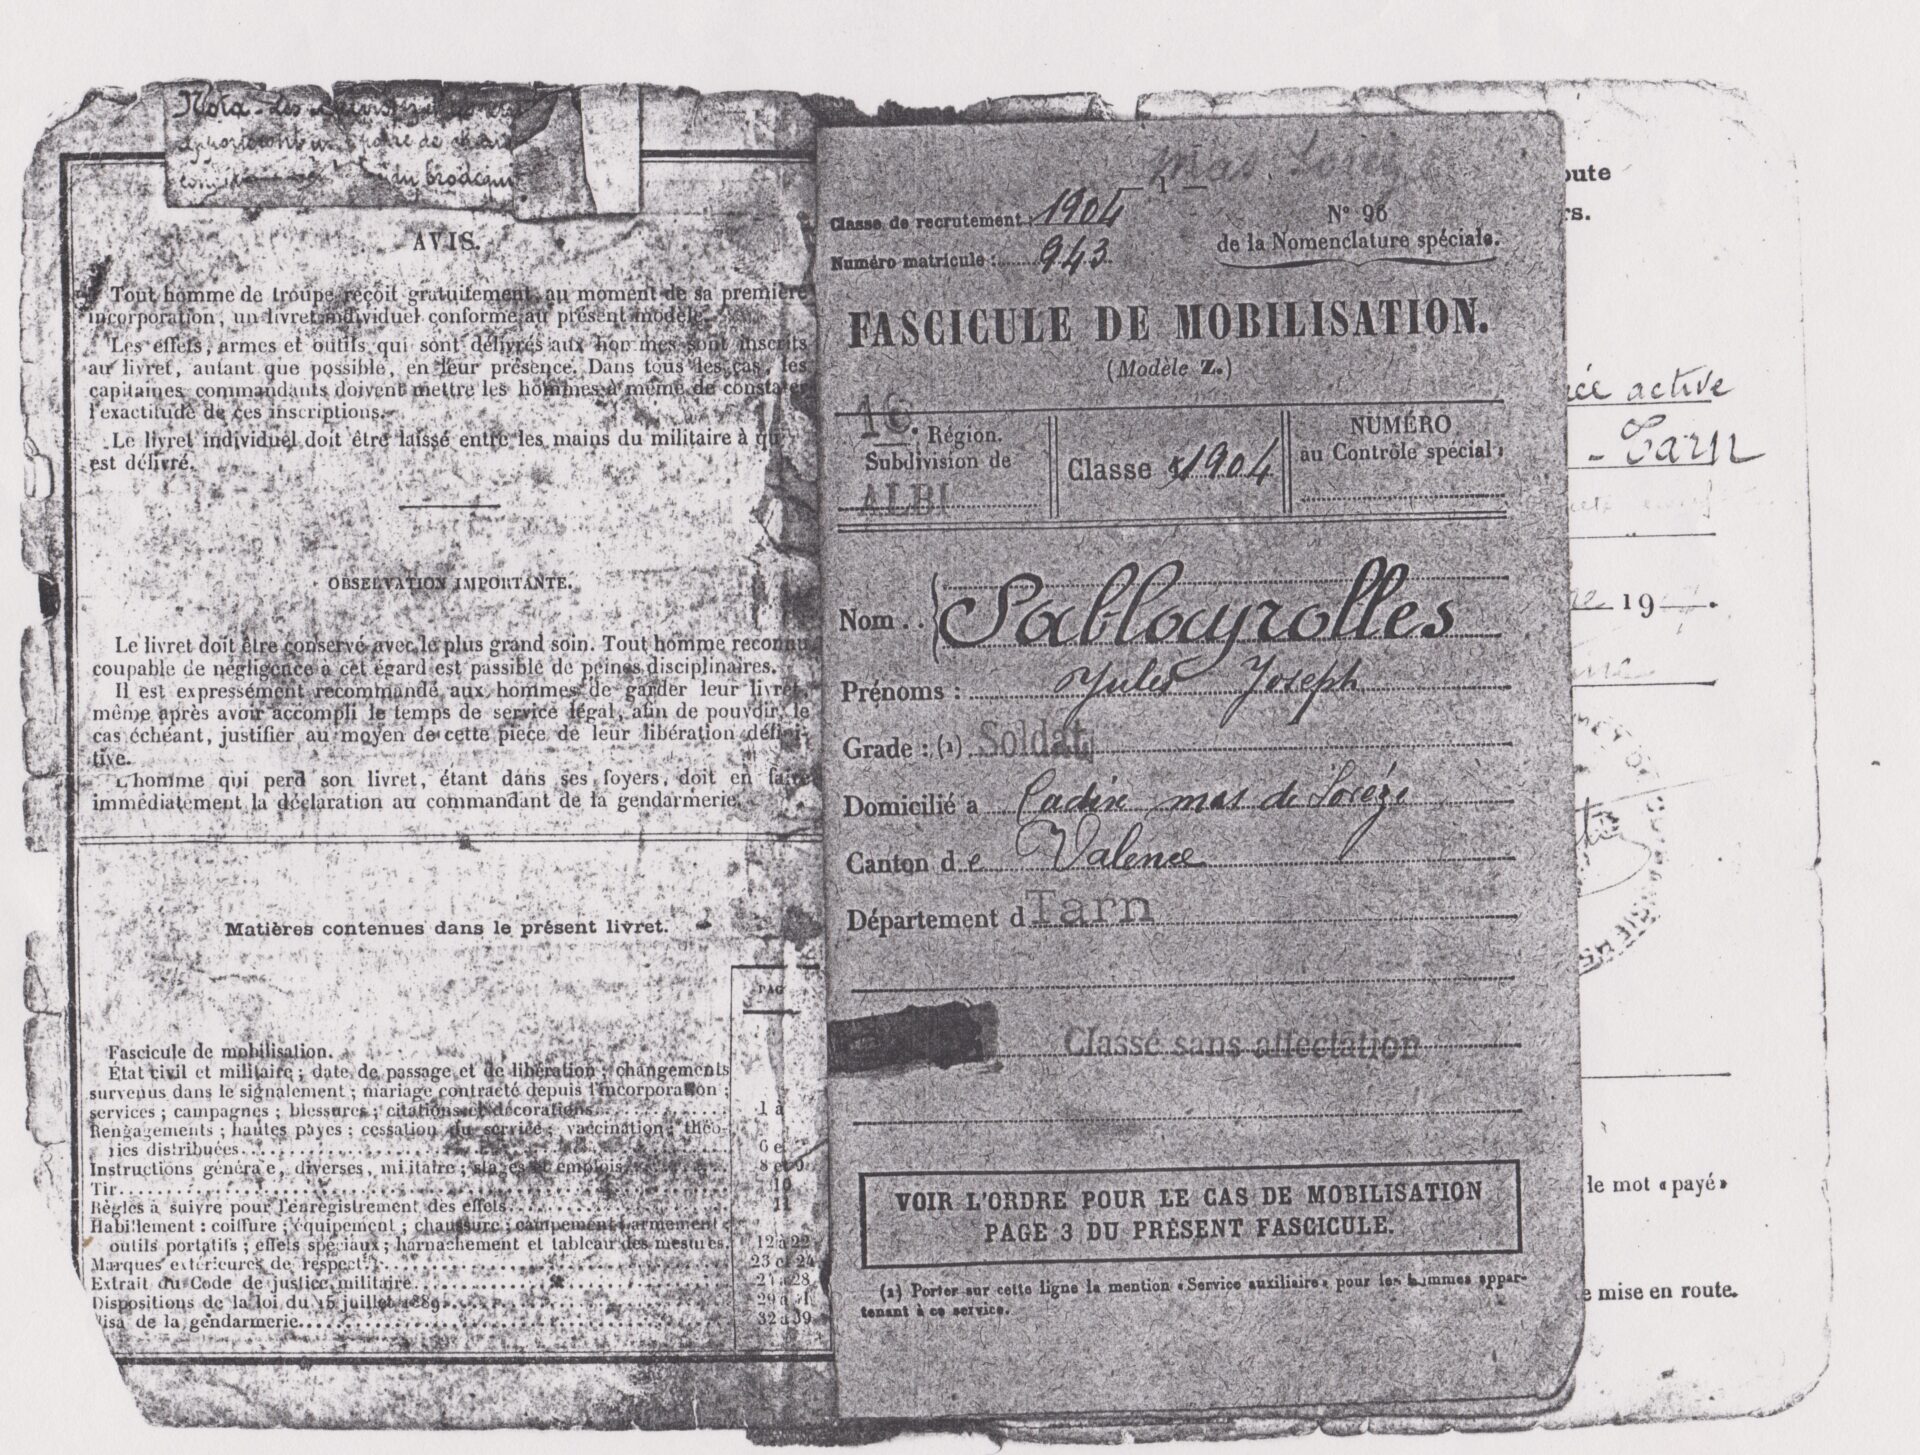 Nota - Les
apporteront un
AVIS.
Tout homme de troupe reçoit gratuitement, au moment de sa première
incorporation, un livret individuel conforme au présent modèle.
Les effets, armes et outils qui sont délivrés aux hommes sont inscrits
au livret, autant que possible, en leur présence. Dans tous les cas, les
capitaines commandants doivent mettre les hommes à même de constater
l'exactitude de ces inscriptions.
Le livret individuel doit être laissé entre les mains du militaire à qu
est délivré.
OBSERVATION IMPORTANTE.
Le livret doit être conservé avec le plus grand soin. Tout homme reconnu
coupable de négligence à cet égard est passible de peines disciplinaires.
Il est expressément recommandé aux hommes de garder leur livret,
même après avoir accompli le temps de service légal, afin de pouvoir, le
cas échéant, justifier au moyen de cette pièce de leur libération défini-
tive.
L'homme qui perd son livret, étant dans ses foyers, doit en faire
immédiatement la déclaration au commandant de la gendarmerie.
Matières contenues dans le présent livret.
PAG
Fascicule de mobilisation.
État civil et militaire; date de passage et de libération; changements
survenus dans le signalement; mariage contracté depuis l'incorporation;
services; campagnes; blessures; citations et décorations 1 à
Rengagements; hautes payes; cessation du service; vaccination; théo-
ries distribuées 6 e
Instructions générale, diverses, militaire; stages et emplois 8 et 9
Tir 10
Règles à suivre pour l'enregistrement des effets 11
Habillement: coiffure; équipement; chaussure; campement; armement;
outils portatifs; effets spéciaux; harnachement et tableau des mesures. 12 à 22
Marques extérieures de respect 23 et 24
Extrait du Code de justice militaire 28
Dispositions de la loi du 15 juillet 1889 29 à
Visa de la gendarmerie 32 à 39
mas Sorèze
— 1 —
Classe de recrutement: 1904
Numéro matricule: 943
N° 96
de la Nomenclature spéciale.
FASCICULE DE MOBILISATION.
(Modèle Z.)
16. Région.
Subdivision de
ALBI
Classe 1904
NUMÉRO
au Contrôle spécial:
Nom.. Sablayrolles
Prénoms: Jules Joseph
Grade: (1) Soldat
Domicilié à Cadix mas de Sorèze
Canton de Valence
Département d Tarn
Classé sans affectation
VOIR L'ORDRE POUR LE CAS DE MOBILISATION
PAGE 3 DU PRÉSENT FASCICULE.
(1) Porter sur cette ligne la mention «Service auxiliaire» pour les hommes appar-
tenant à ce service.
oute
rs.
ée active
- Tarn
19
le mot «payé»
e mise en route.